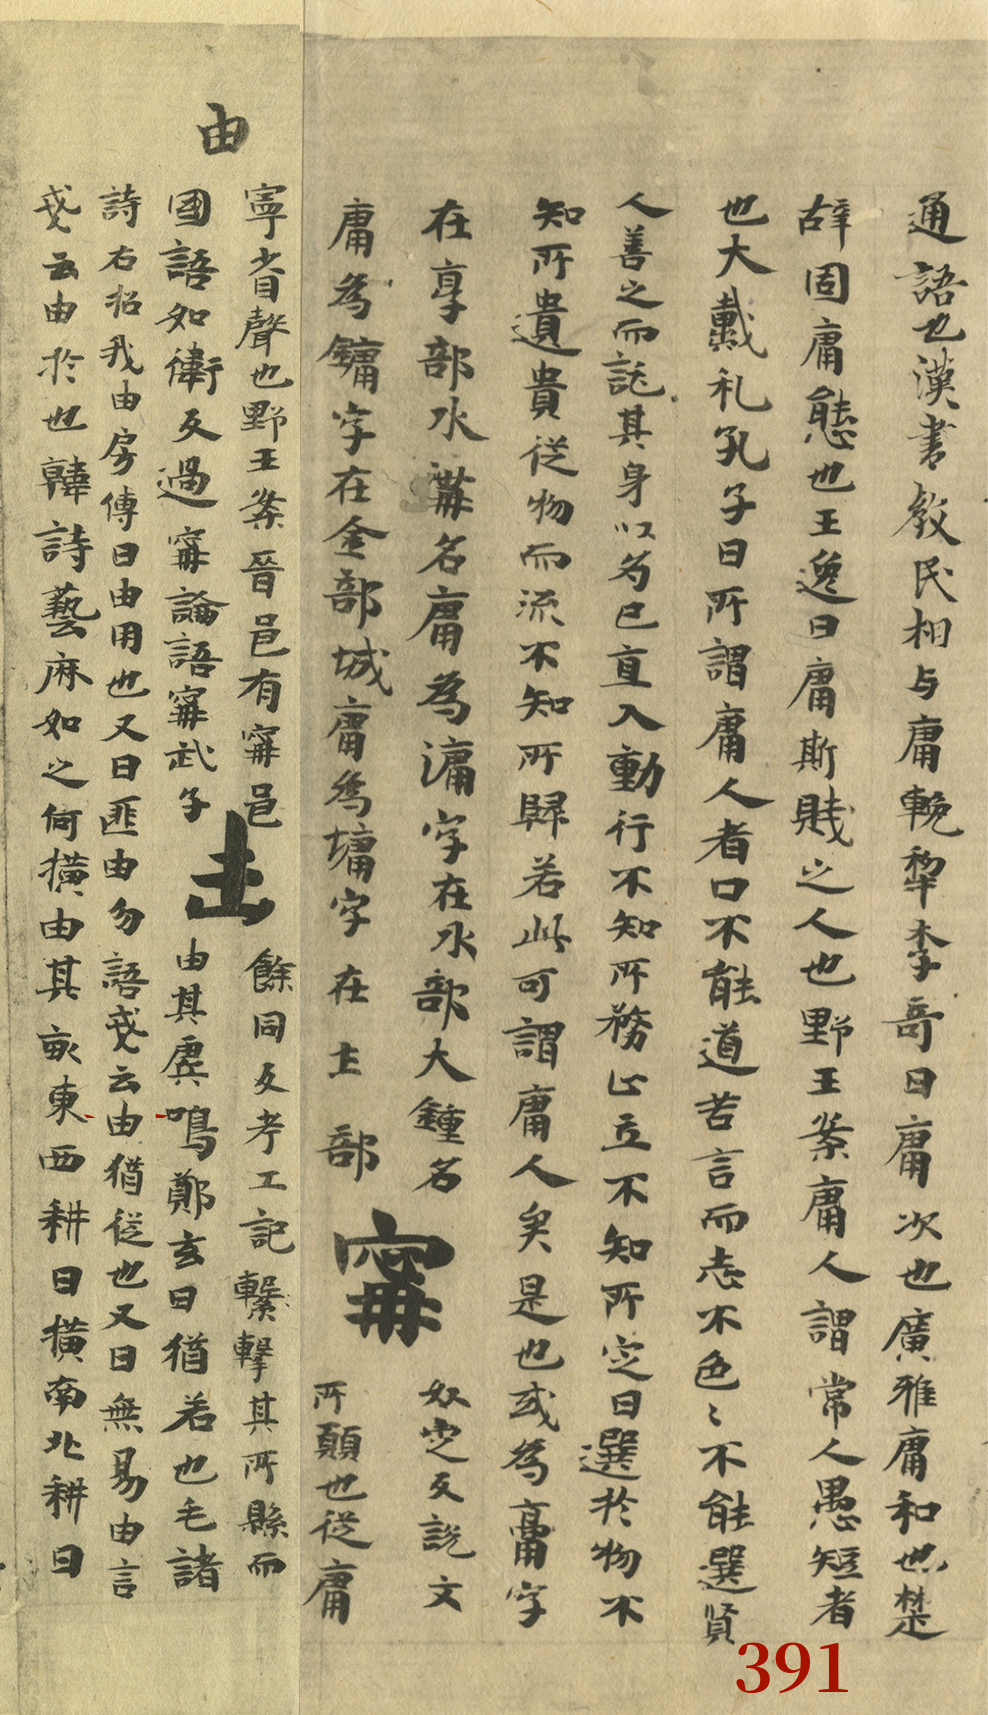 通語也漢書教民相与庸輓犂李哥曰庸次也廣雅庸和也楚
辞固庸態也王逸曰庸斯賎之人也野王案庸人謂常人愚短者
也大戴礼孔子曰所謂庸人者口不能道苦言而志不色〻不能選賢
人善之而託其身以為已直入動行不知所務止立不知所定日選於物不
知所遺貴従物而流不知所歸若此可謂庸人矣是也或為𩫏字
在享部水溝名庸為滽字在水部大鍾名
庸為鏞字在金部城庸為墉字在土部
甯
奴定反說文
所願也従庸
寧省聲也野王案晉邑有甯邑
國語如衛反過甯論語甯武子
由
餘同反考工記繫擊其所縣而
由其虡鳴鄭玄曰猶若也毛諸
詩右招我由房傳曰由用也又曰匪由勿語戔云由猶従也又曰無易由言
戔云由於也韓詩藝麻如之何横由其畝東西耕曰横南北耕曰
391